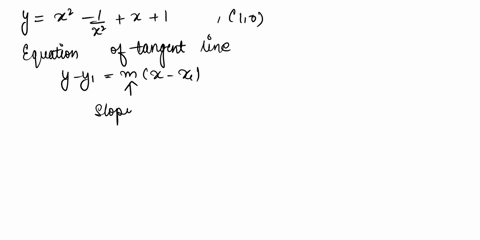 y = x² - 1/x² + x + 1 , (1,0)
Equation of tangent line
y - y₁ = m (x - x₁)
↑
Slope